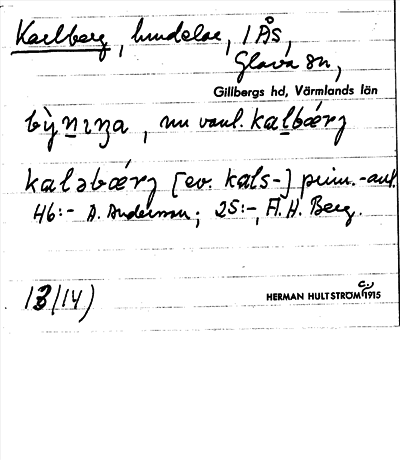 Karlberg, hmdelar, 1 Ås,
Glava sn,
Gillbergs hd, Värmlands län
bỳnıŋa, nu vanl. kalbǽrg
kaləbǽrg [ev. kals-] prim.-aul.
46:- A. Anderson; 25:-, A. H. Berg.
13/14)
HERMAN HULTSTRÖM 1915